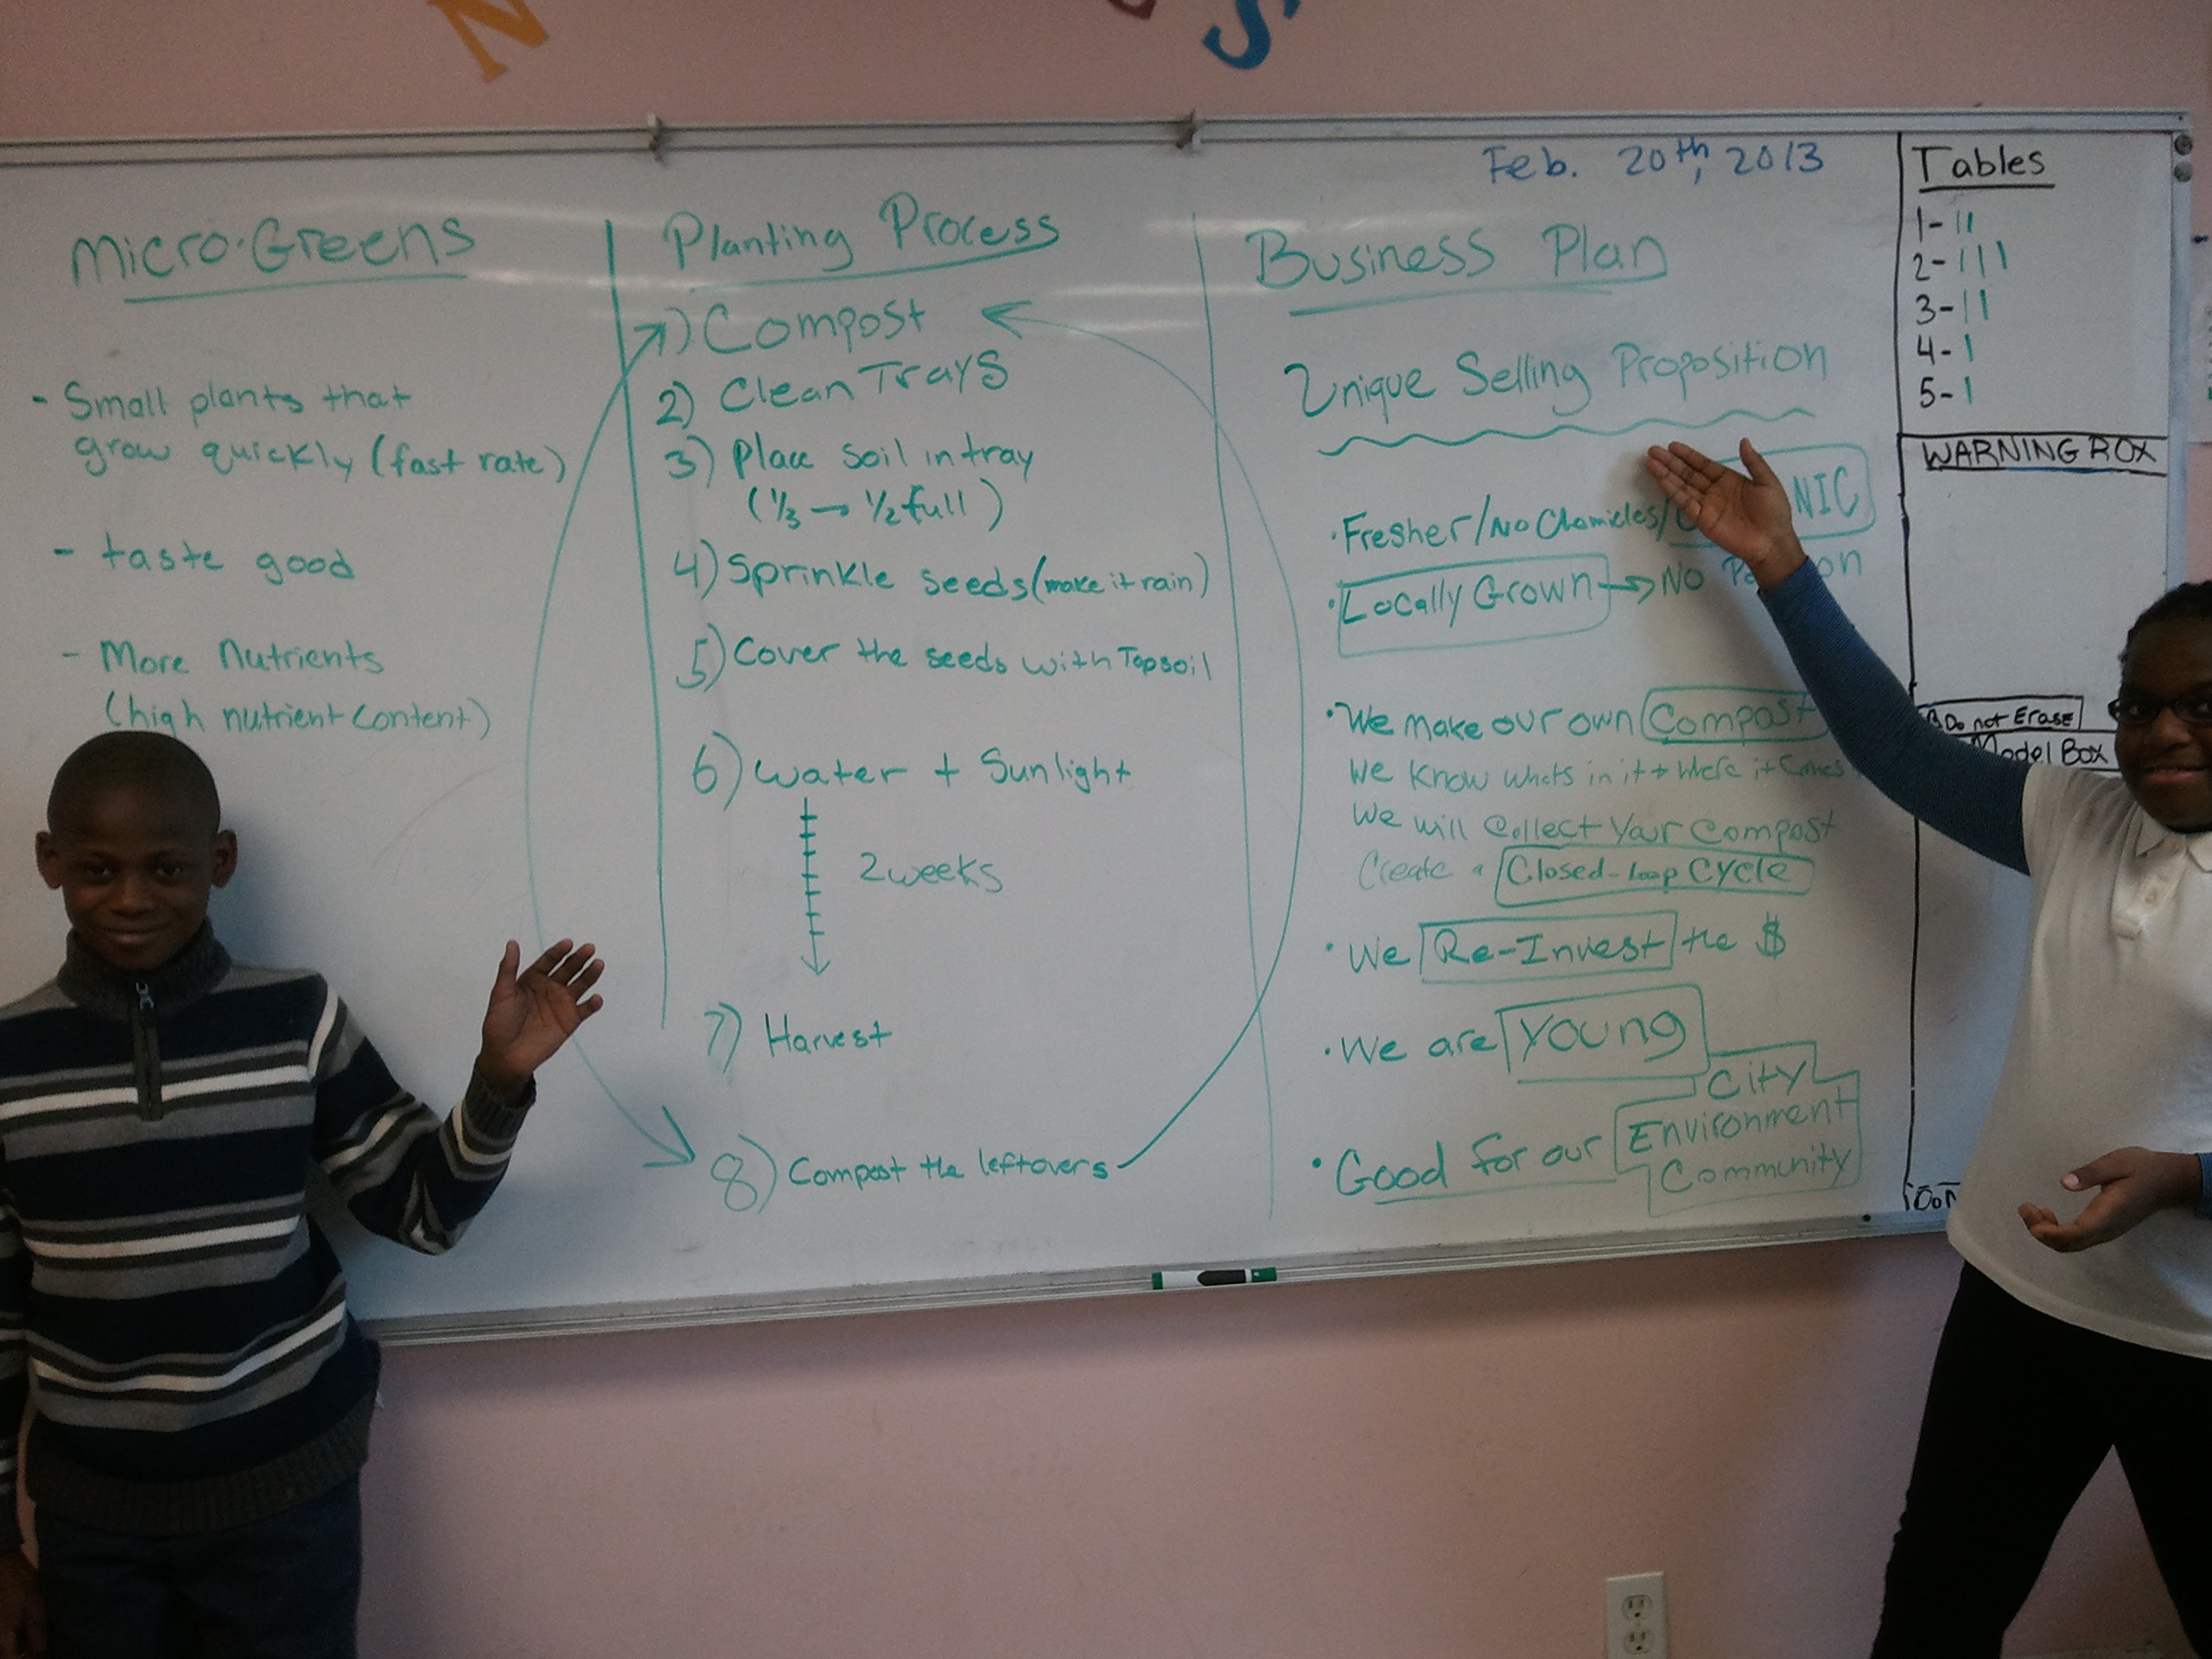 Micro-Greens
- Small plants that
grow quickly (fast rate)
- taste good
- More Nutrients
(high nutrient content)
Planting Process
1) Compost
2) Clean Trays
3) Place soil in tray
(1/3 → 1/2 full)
4) Sprinkle seeds (make it rain)
5) Cover the seeds with Topsoil
6) Water + Sunlight
2 weeks
7) Harvest
8) Compost the leftovers
Feb. 20th, 2013
Business Plan
Unique Selling Proposition
• Fresher/No Chemicles/ NIC
• Locally Grown → No
• We make our own Compost
We know whats in it + where it comes
We will collect your compost
Create a Closed-Loop Cycle
• We Re-Invest the $
• We are Young
City
• Good for our Environment
Community
Tables
1- II
2- III
3- II
4- I
5- I
WARNING BOX
Do not Erase
Model Box
N
S